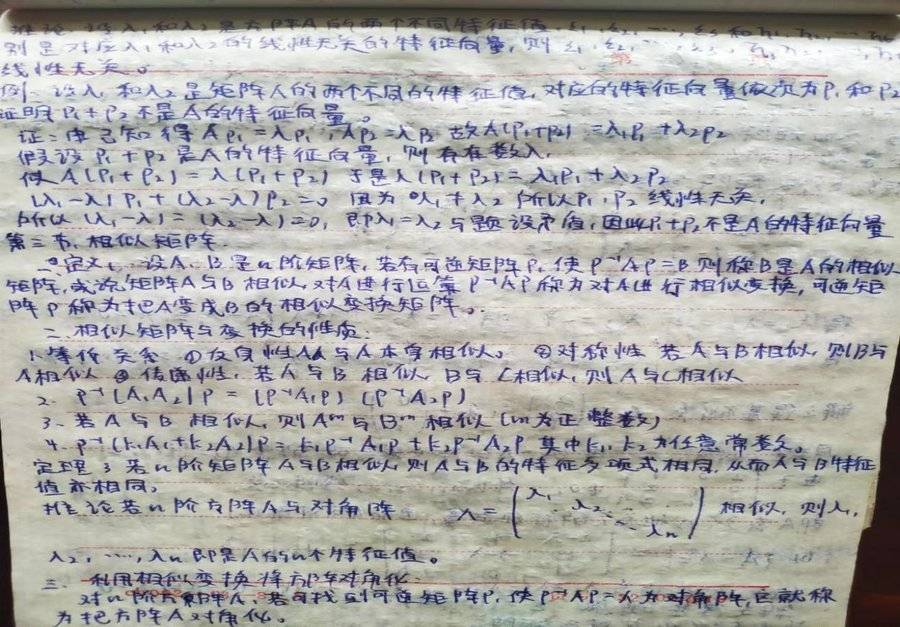 推论 设λ1和λ2是方阵A的两个不同特征值,ξ1,ξ2,…,ξs和η1,η2,…
别是对应λ1和λ2的线性无关的特征向量,则ξ1,ξ2,…,ξs,η1,η2,…
线性无关。
例、设λ1和λ2是矩阵A的两个不同的特征值,对应的特征向量依次为P1和P2
证明P1+P2不是A的特征向量。
证:由已知得AP1=λP1,AP2=λP2 故A(P1+P2)=λ1P1+λ2P2
假设P1+P2是A的特征向量,则存在数λ,
使A(P1+P2)=λ(P1+P2) 于是λ(P1+P2)=λ1P1+λ2P2
(λ1-λ)P1+(λ2-λ)P2=0 因为λ1+λ2所以P1,P2线性无关,
所以(λ1-λ)=(λ2-λ)=0,即λ1=λ2与题设矛盾,因此P1+P2不是A的特征向量
第三节、相似矩阵
一.定义1、设A、B是n阶矩阵,若有可逆矩阵P,使P⁻¹AP=B 则称B是A的相似
矩阵,或说矩阵A与B相似,对A进行运算P⁻¹AP称为对A进行相似变换,可逆矩
阵P称为把A变成B的相似变换矩阵。
二.相似矩阵与变换的性质
1.等价关系 ①反身性AA与A本身相似。 ②对称性 若A与B相似,则B与
A相似 ③传递性,若A与B相似 B与C相似,则A与C相似
2. P⁻¹(A1A2)P=(P⁻¹A1P)(P⁻¹A2P)
3.若A与B相似,则Aᵐ与Bᵐ相似(m为正整数)
4. P⁻¹(k1A1+k2A2)P=k1P⁻¹A1P+k2P⁻¹A2P 其中k1,k2为任意常数。
定理3 若n阶矩阵A与B相似,则A与B的特征多项式相同,从而A与B特征
值亦相同。
推论若n阶方阵A与对角阵 Λ=(λ1 λ2 ⋱ λn) 相似,则λ1,
λ2,…,λn即是A的n个特征值。
三.利用相似变换将方阵对角化
对n阶方阵A,若可找到可逆矩阵P,使P⁻¹AP=Λ为对角阵,它就称
为把方阵A对角化。